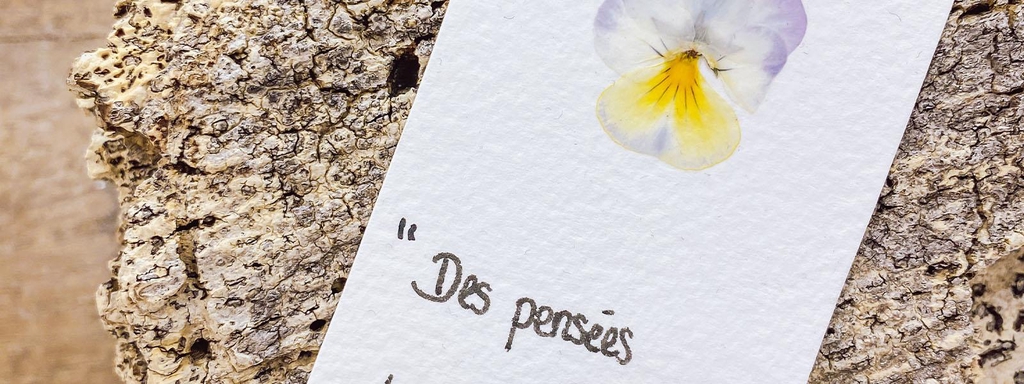 "Des pensées